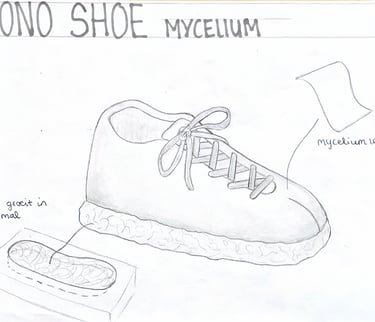 ONO SHOE MYCELIUM
mycelium
groeit in
mal